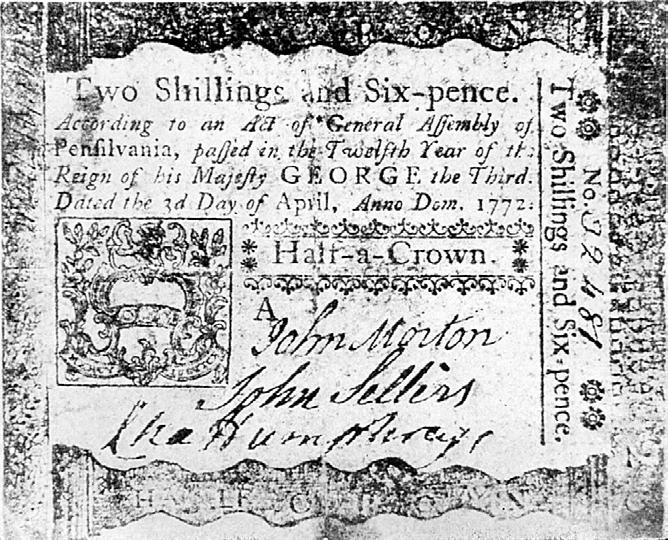 Two Shillings and Six-pence.
According to an Act of General Aſſembly of
Penſilvania, paſſed in the Twelfth Year of the
Reign of his Majeſty GEORGE the Third.
Dated the 3d Day of April, Anno Dom. 1772.
Half-a-Crown.
A
John Morton
John Sellers
Cha Humphreys
Two Shillings and Six-pence.
No.
HALF CROWN